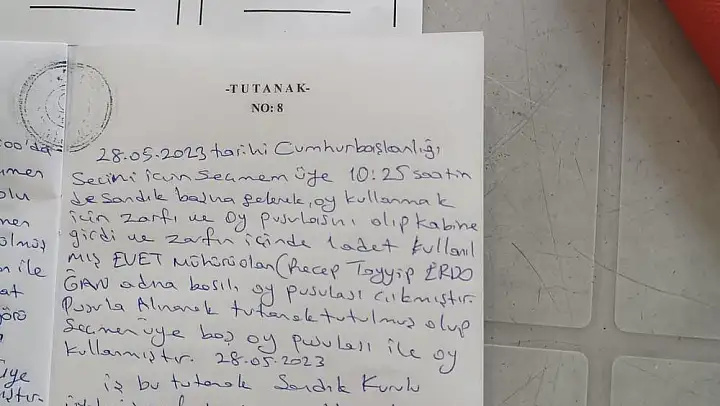 -TUTANAK-
NO: 8
28.05.2023 tarihi Cumhurbaşkanlığı
Seçimi için Seçmem üye 10:25 saatin
de sandık başına gelerek, oy kullanmak
için zarfı ve oy pusulasını alıp kabine
girdi ve zarfın içinde 1 adet kullanıl
mış EVET mühürü olan (Recep Tayyip ERDO
ĞAN adına basılı oy pusulası çıkmıştır.
Pusula Alınarak tutanak tutulmuş olup
Seçmen üye boş oy pusulası ile oy
kullanmıştır. 28.05.2023
iş bu tutanak Sandık Kurulu
00'da
men
olu
men
olmuş
n ile
at
görü
üye
mıştır.